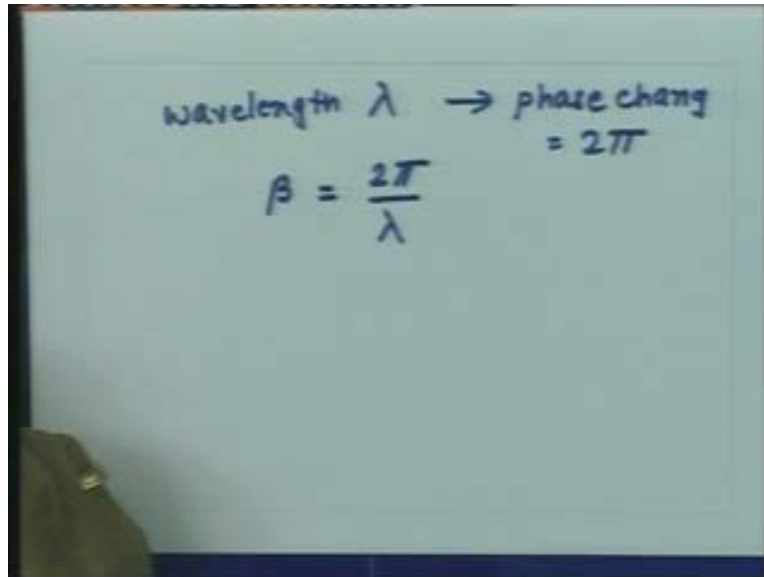 wavelength λ → phase chang
= 2π
β = 2π/λ